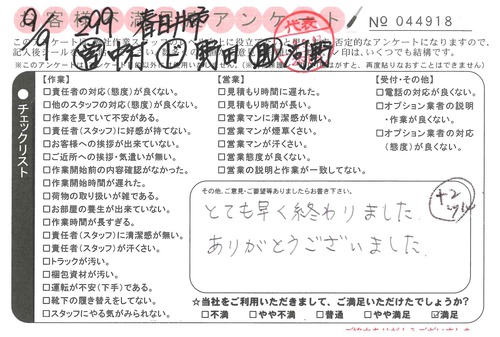 お客様不満足アンケート
No 044918
9/9
春日井市
代表
このアンケートは
否定的なアンケートになりますので、
記入後シールを
いくつでも結構です。
※このアンケートは
剥がすと、再度貼りなおすことはできません)
チェックリスト
【作業】
□責任者の対応(態度)が良くない。
□他のスタッフの対応(態度)が良くない。
□作業を見ていて不安がある。
□責任者(スタッフ)に好感が持てない。
□お客様への挨拶が出来ていない。
□ご近所への挨拶・気遣いが無い。
□作業開始前の内容確認がなかった。
□作業開始時間が遅れた。
□荷物の取り扱いが雑である。
□お部屋の養生が出来ていない。
□作業時間が長すぎる。
□責任者(スタッフ)に清潔感が無い。
□責任者(スタッフ)が汗くさい。
□トラックが汚い。
□梱包資材が汚い。
□運転が不安(下手)である。
□靴下の履き替えをしてない。
□スタッフにやる気がみられない。
【営業】
□見積もり時間に遅れた。
□見積もり時間が長い。
□営業マンに清潔感が無い。
□営業マンが煙草くさい。
□営業マンが汗くさい。
□営業態度が良くない。
□営業の説明と作業が一致してない。
【受付・その他】
□電話の対応が良くない。
□オプション業者の説明
・作業が良くない。
□オプション業者の対応
(態度)が良くない。
その他、ご意見・ご要望等ありましたらお書き下さい。
とても早く終わりました。
ありがとうございました。
☆当社をご利用いただきまして、ご満足いただけたでしょうか?
□不満 □やや不満 □普通 □やや満足 ☑満足